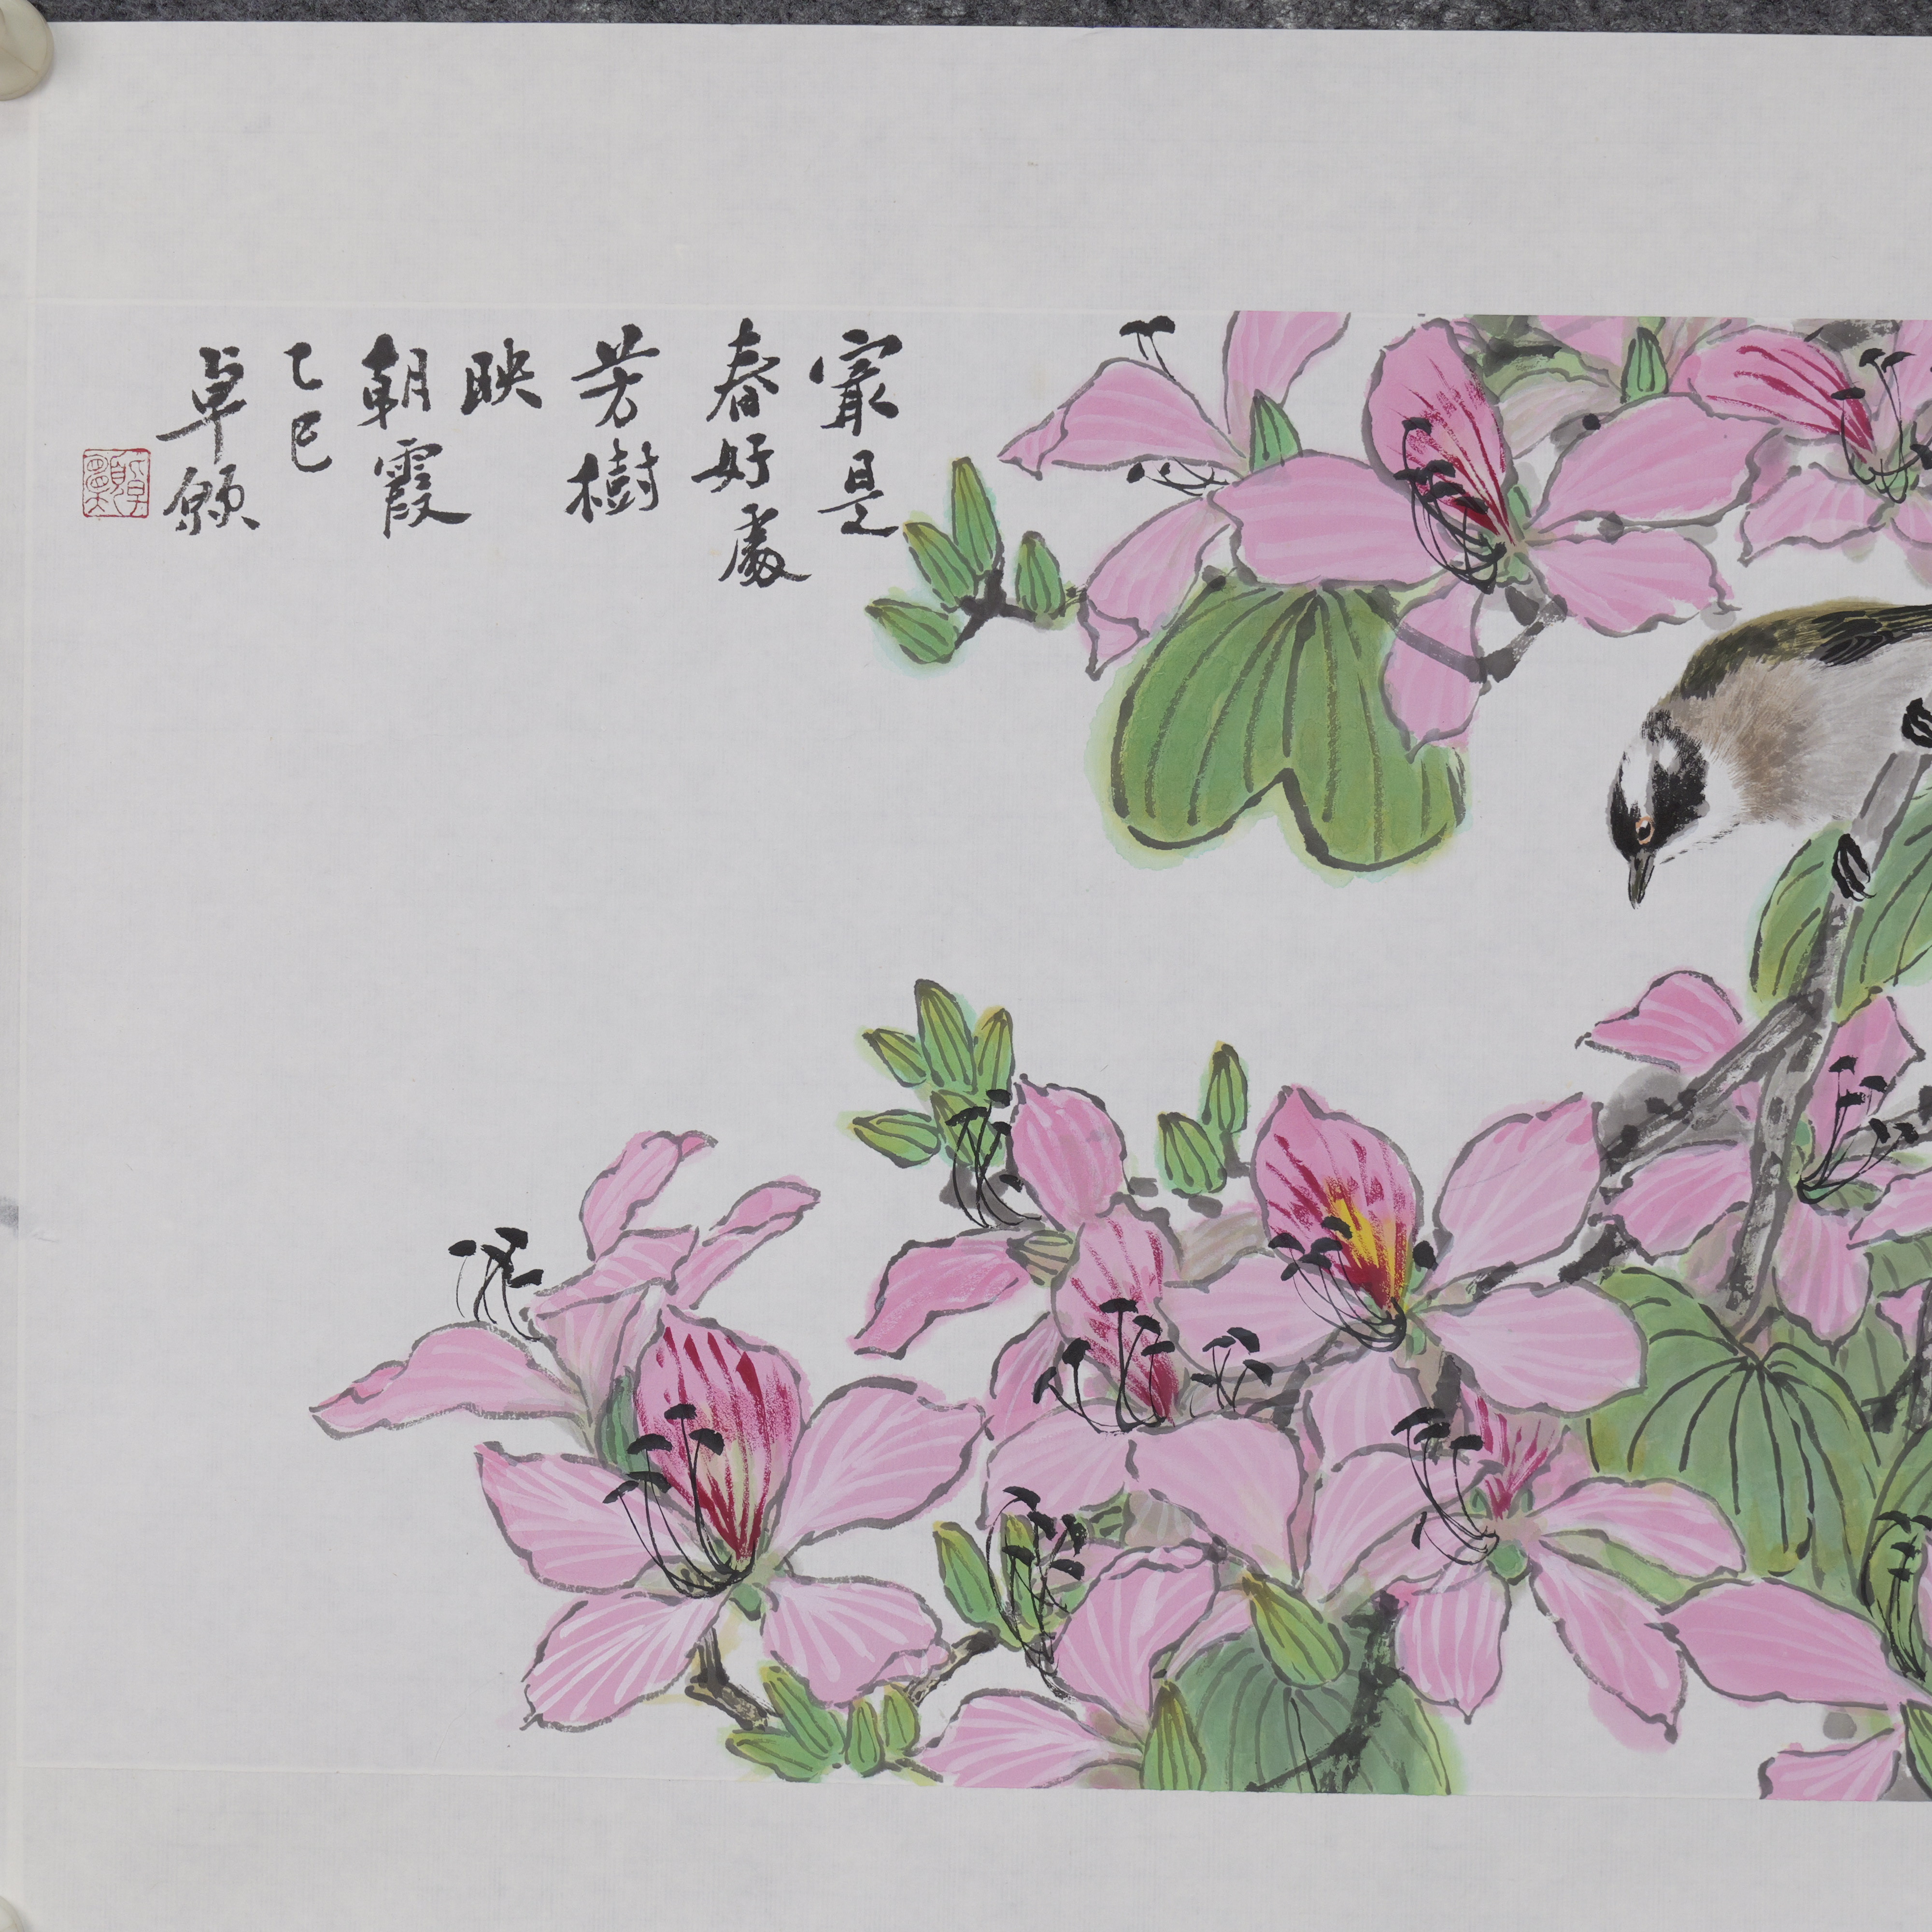 㝡是
春好處
芳樹
映
朝霞
乙巳
卓